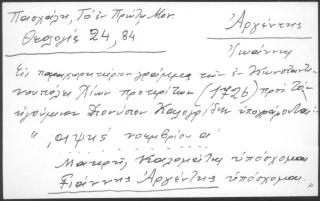 Πασχάλη, Τὸ ἐν Πρώτῃ Μον.
Θεολογίς 24, 84
Ἀργέντης
Ἰωάννης
Εἰς παραχωρητήριον γράμμα τῶν ἐν Κωνσταντι-
νουπόλει Χίων προκρίτων (1726) πρὸς τὸν
ἡγούμενον Διονύσιον Καλογρίδην ὑπογράφονται:
", αψκς νοεμβρίου α'
Μακρῆς Καλομάτης ὑπόσχομαι
Γιάννης Ἀργέντης ὑπόσχομαι.